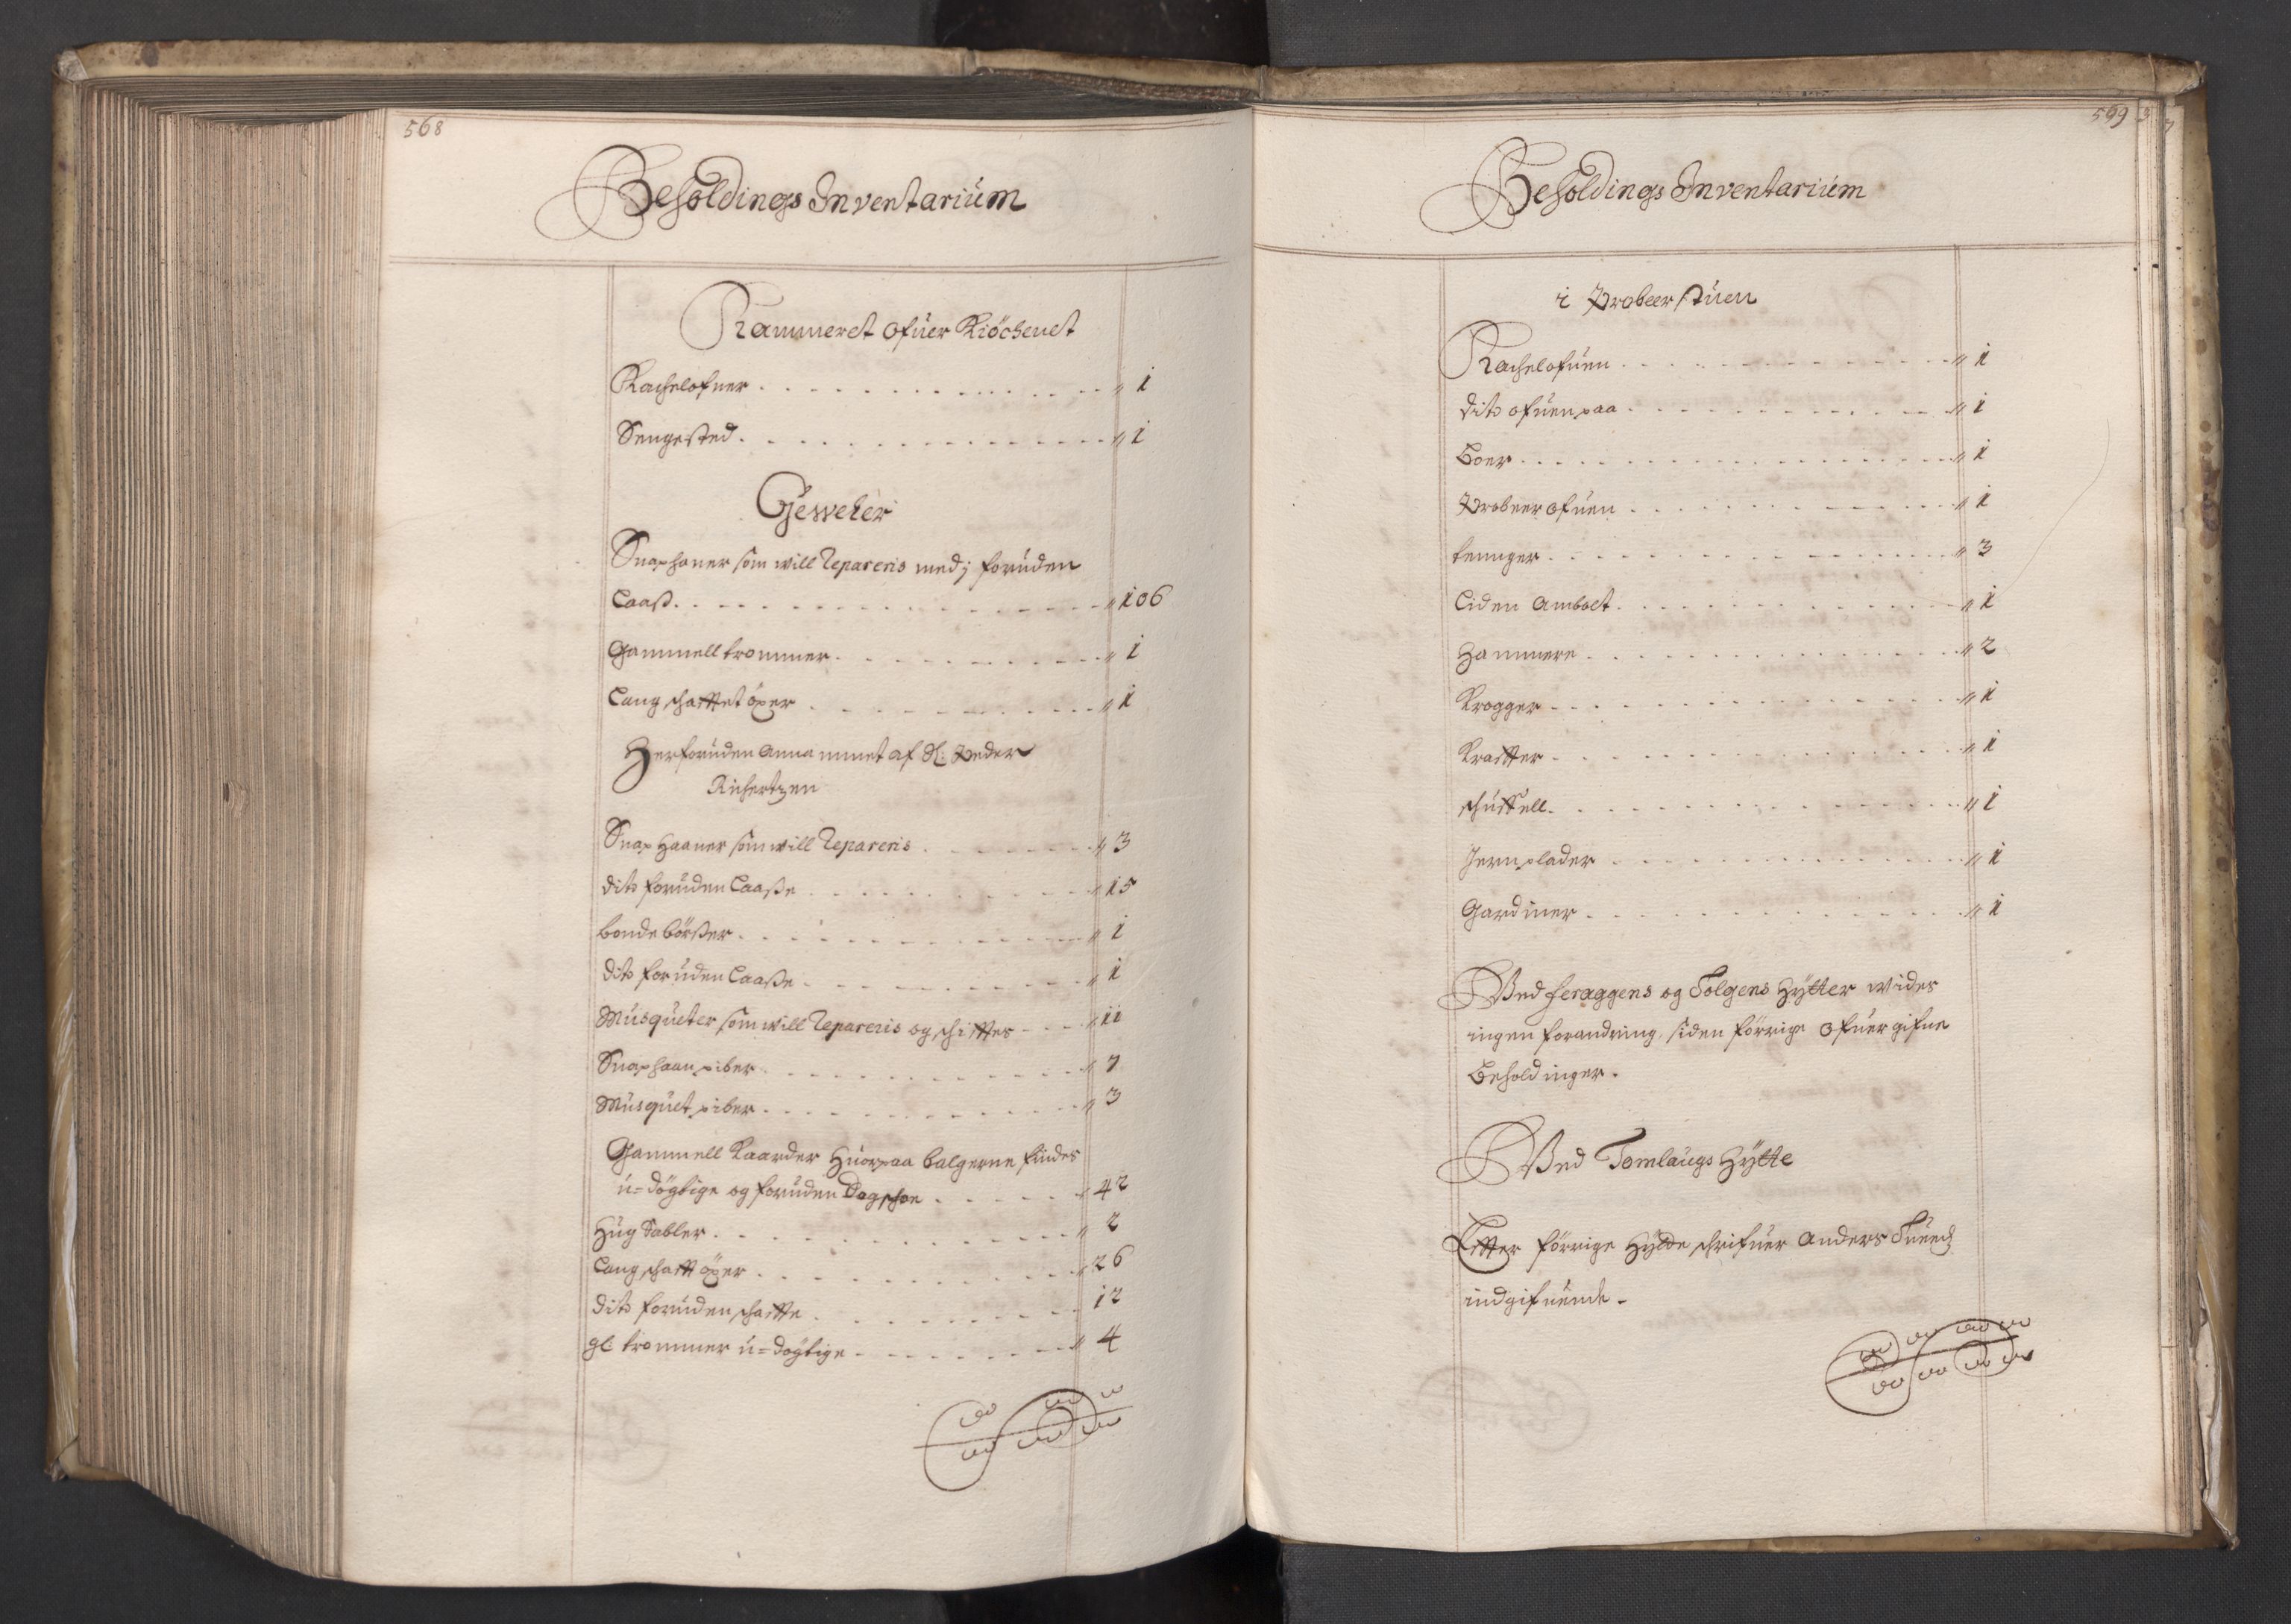 568
Beholdings Inventarium
Kammeret ofuer Kiöchenet
Kachelofner " 1
Sengested " 1
Gewehr
Snaphaner som will Repareris med foruden
Laas " 106
Gammell trommer " 1
Lang schafftet öxer " 1
Herforuden Annammet af Sl: Peder
Richertzen
Snaphaaner som will Repareris " 3
dito foruden Laasse " 15
bonde börsser " 1
dito foruden Laasse " 1
Musqueter som will Repareris og schifftes " 11
Snaphaan piber " 7
Musquet piber " 3
Gammell Kaarder Huorpaa balgerne findes
u=dögtige og foruden Dogschoe " 42
Hug Sabler " 2
Lang schafft öxer " 26
dito foruden schaffte 12
gl: trommer u=dögtige " 4
569
Beholdings Inventarium
i Probeer stuen
Kachelofuen " 1
dito ofuen paa " 1
Boer " 1
Probeer ofuen " 1
tennger " 3
Liden Ambolt " 1
Hammere " 2
Krogger " 1
Kratter " 1
schuffell " 1
Jern plader " 1
Gardiner " 1
Ved feraggens og Tolgens Hytter wides
ingen forandring, siden förrige ofuergifne
Beholdinger.
Ved Tomlaugs Hytte
Effter förrige Hytte schrifuer Anders
indgifuende